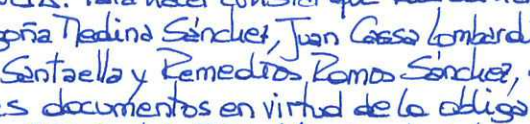 Para hacer constar que
goña Medina Sánchez, Juan Cassa Lombard
Santaella y Remedios Ramos Sánchez,
s documentos en virtud de la obliga